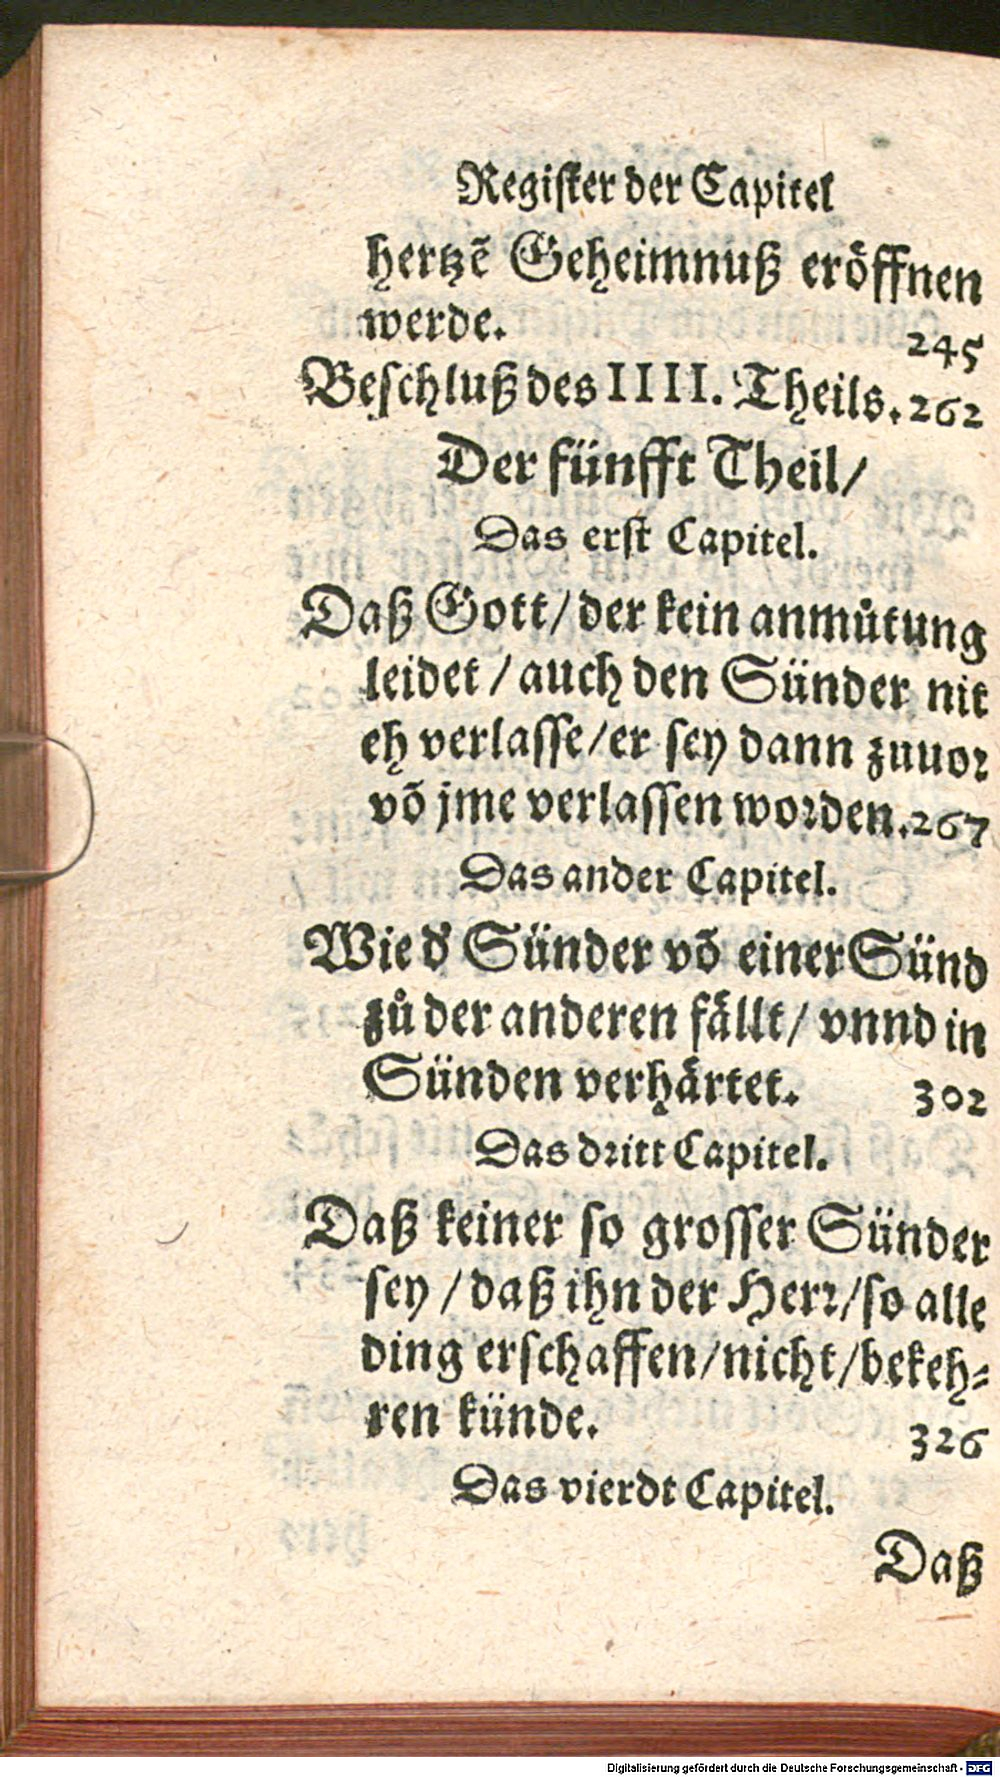 Register der Capitel
hertzẽ Geheimnuß eröffnen
werde. 245
Beschluß des IIII. Theils. 262
Der fünfft Theil/
Das erst Capitel.
Daß Gott/ der kein anmůtung
leidet / auch den Sünder nit
eh verlasse/er sey dann zuuor
võ jme verlassen worden. 267
Das ander Capitel.
Wie d' Sünder võ einer Sünd
zů der anderen fällt/ vnnd in
Sünden verhärtet. 302
Das dritt Capitel.
Daß keiner so grosser Sünder
sey / daß ihn der Herr/so alle
ding erschaffen/nicht/bekeh-
ren künde. 326
Das vierdt Capitel.
Daß
Digitalisierung gefördert durch die Deutsche Forschungsgemeinschaft - DFG